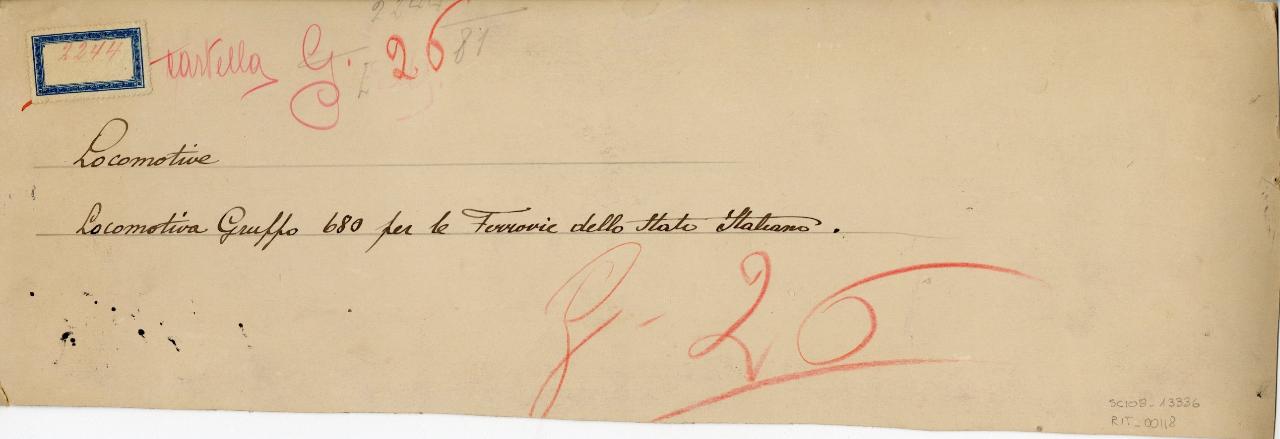 2244
2244
81
cartella G. 26
Locomotive
Locomotiva Gruppo 680 per le Ferrovie dello Stato Italiano.
G - 26
SCIOB_13336
RIT_00118